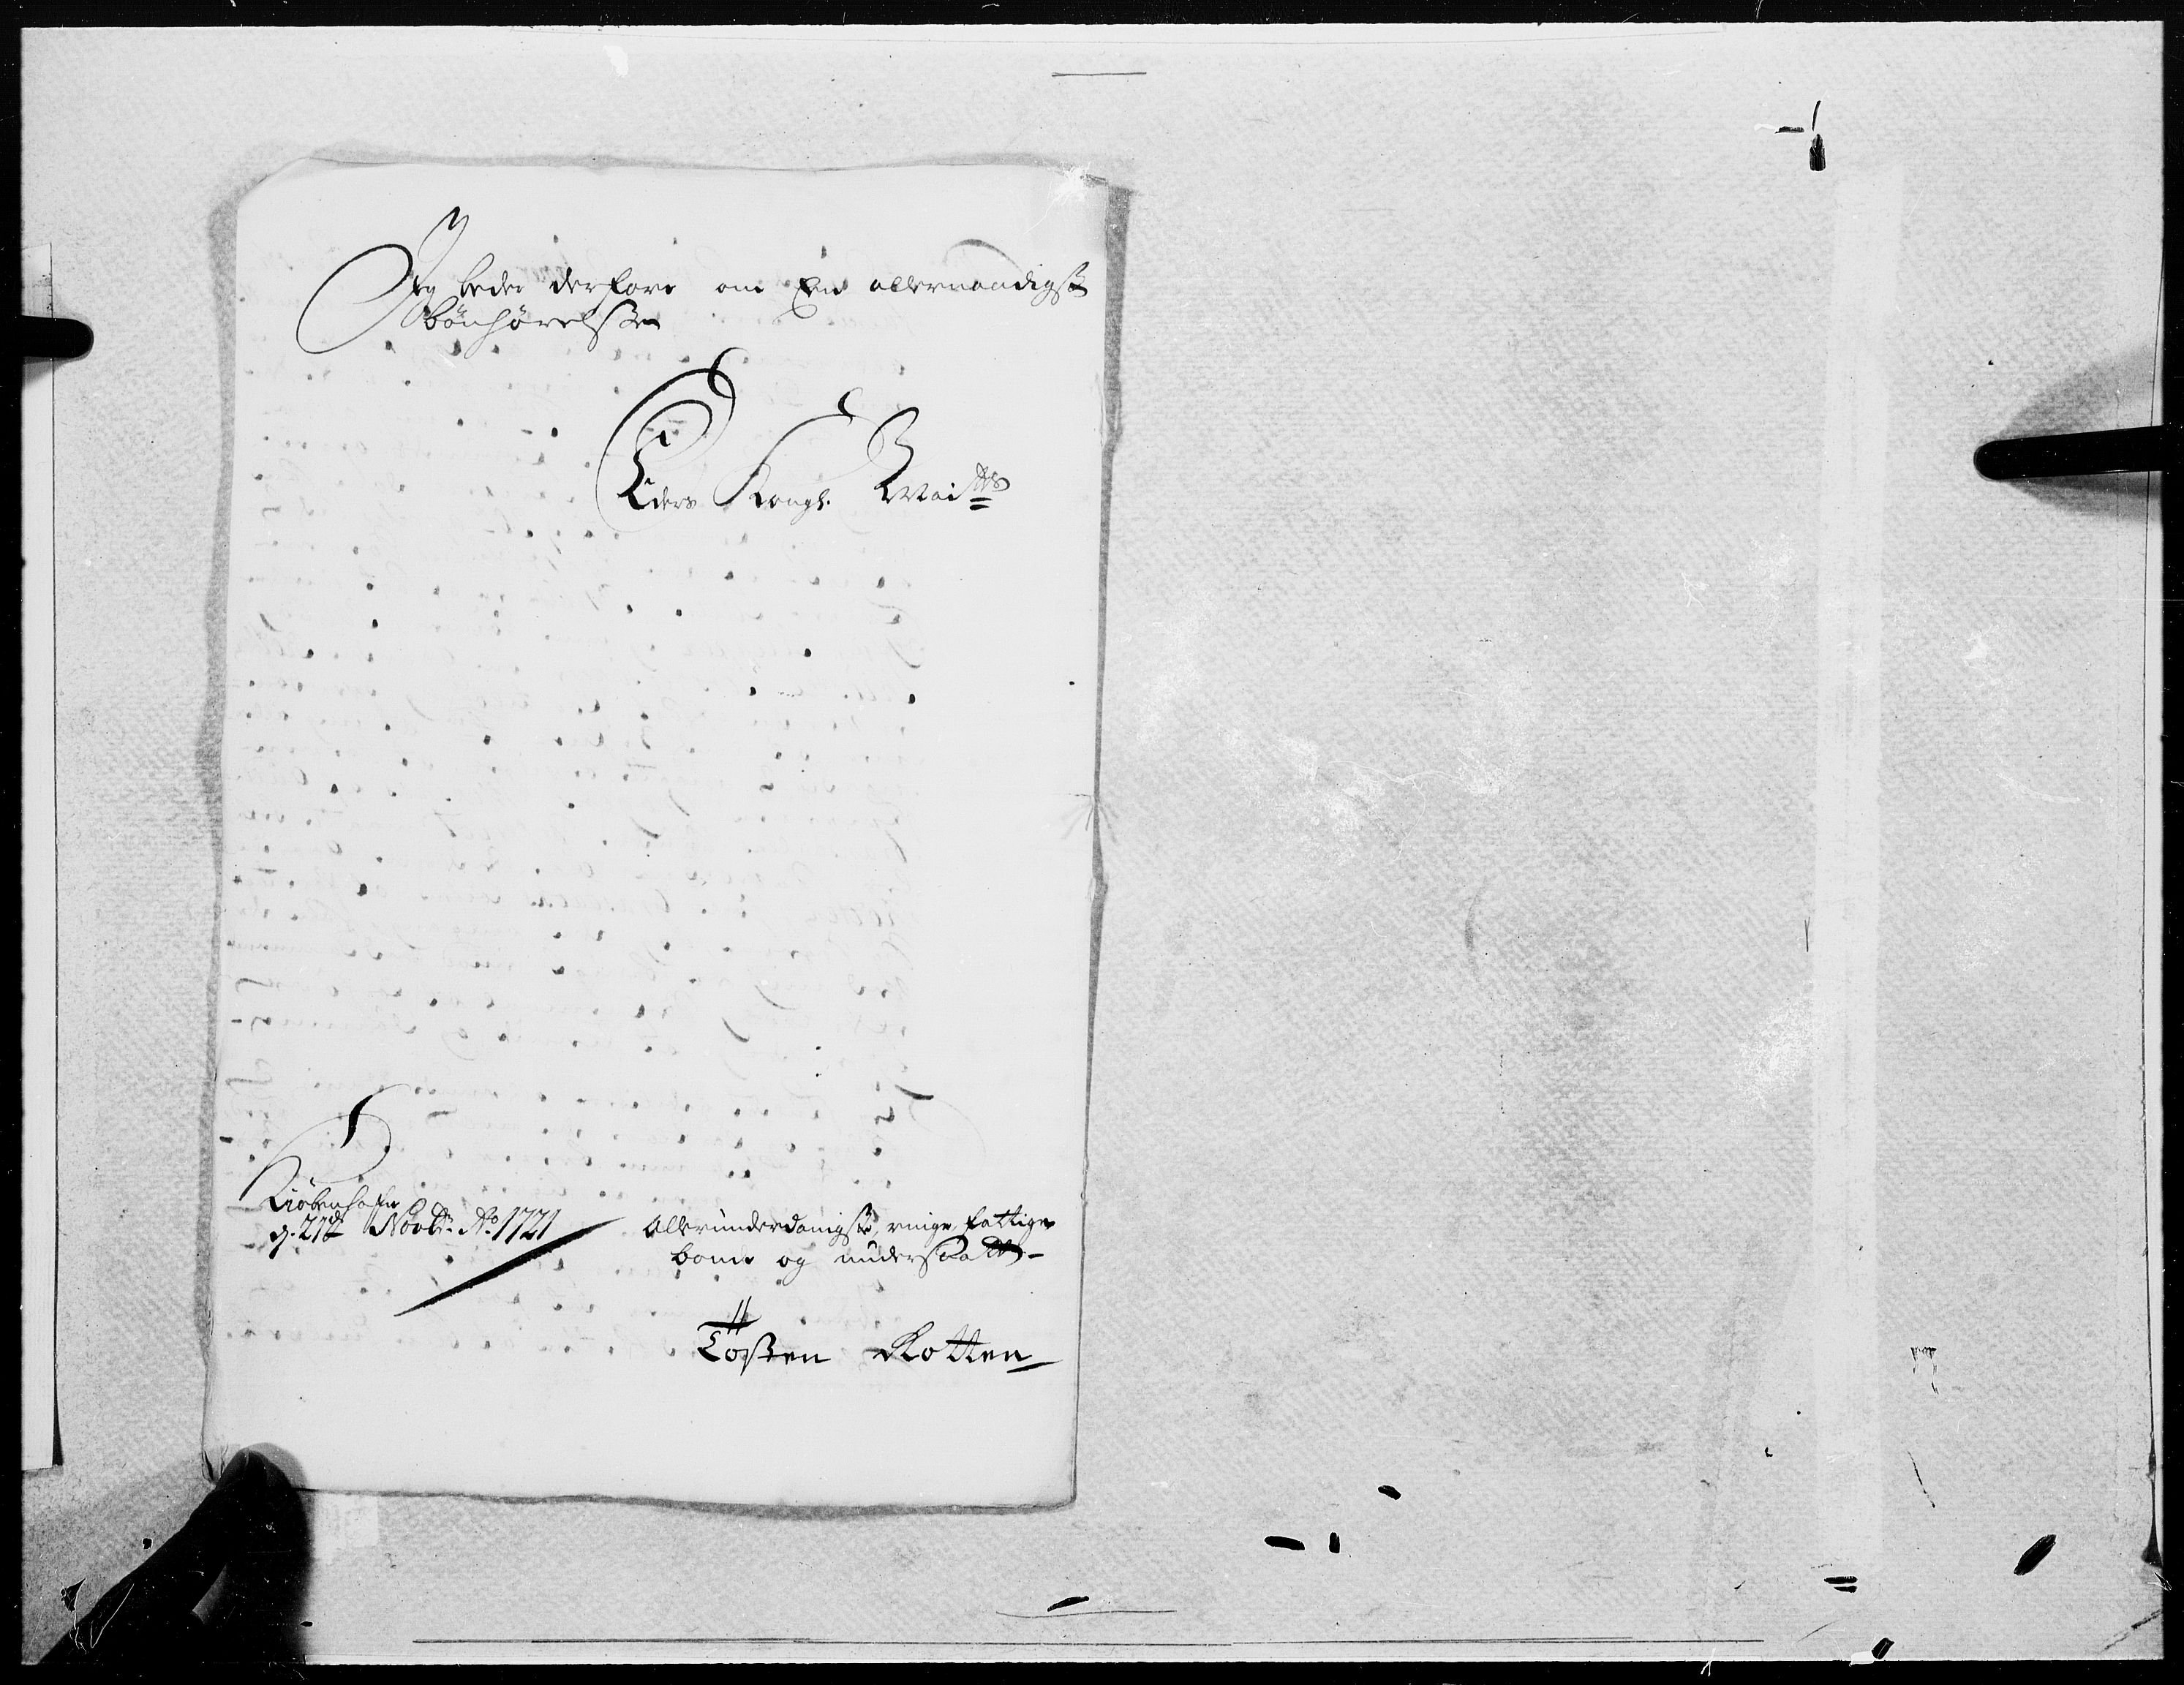 Jeg beder derfore om En allernaadigst
bönhörelsse
Eders Kongl. Maits
Kiöbenhafn
d. 21de Novbr. Ao. 1721
Allerunderdanigste, ringe, fattige
bonde og undersaatt
Tosten Rotten